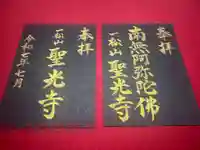 奉拝
一松山
聖光寺
令和七年七月
奉拝
南無阿弥陀佛
一松山
聖光寺